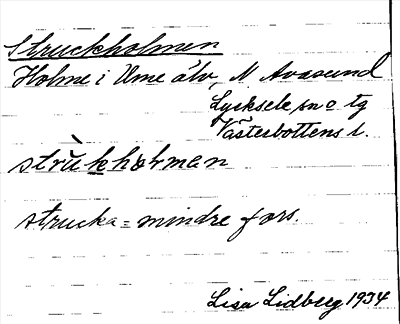 Struckholmen
Holme i Ume älv, N. Avasund
Lycksele sn o tg
Västerbottens l.
strùkholman
strucka = mindre fors.
Lisa Lidberg 1934